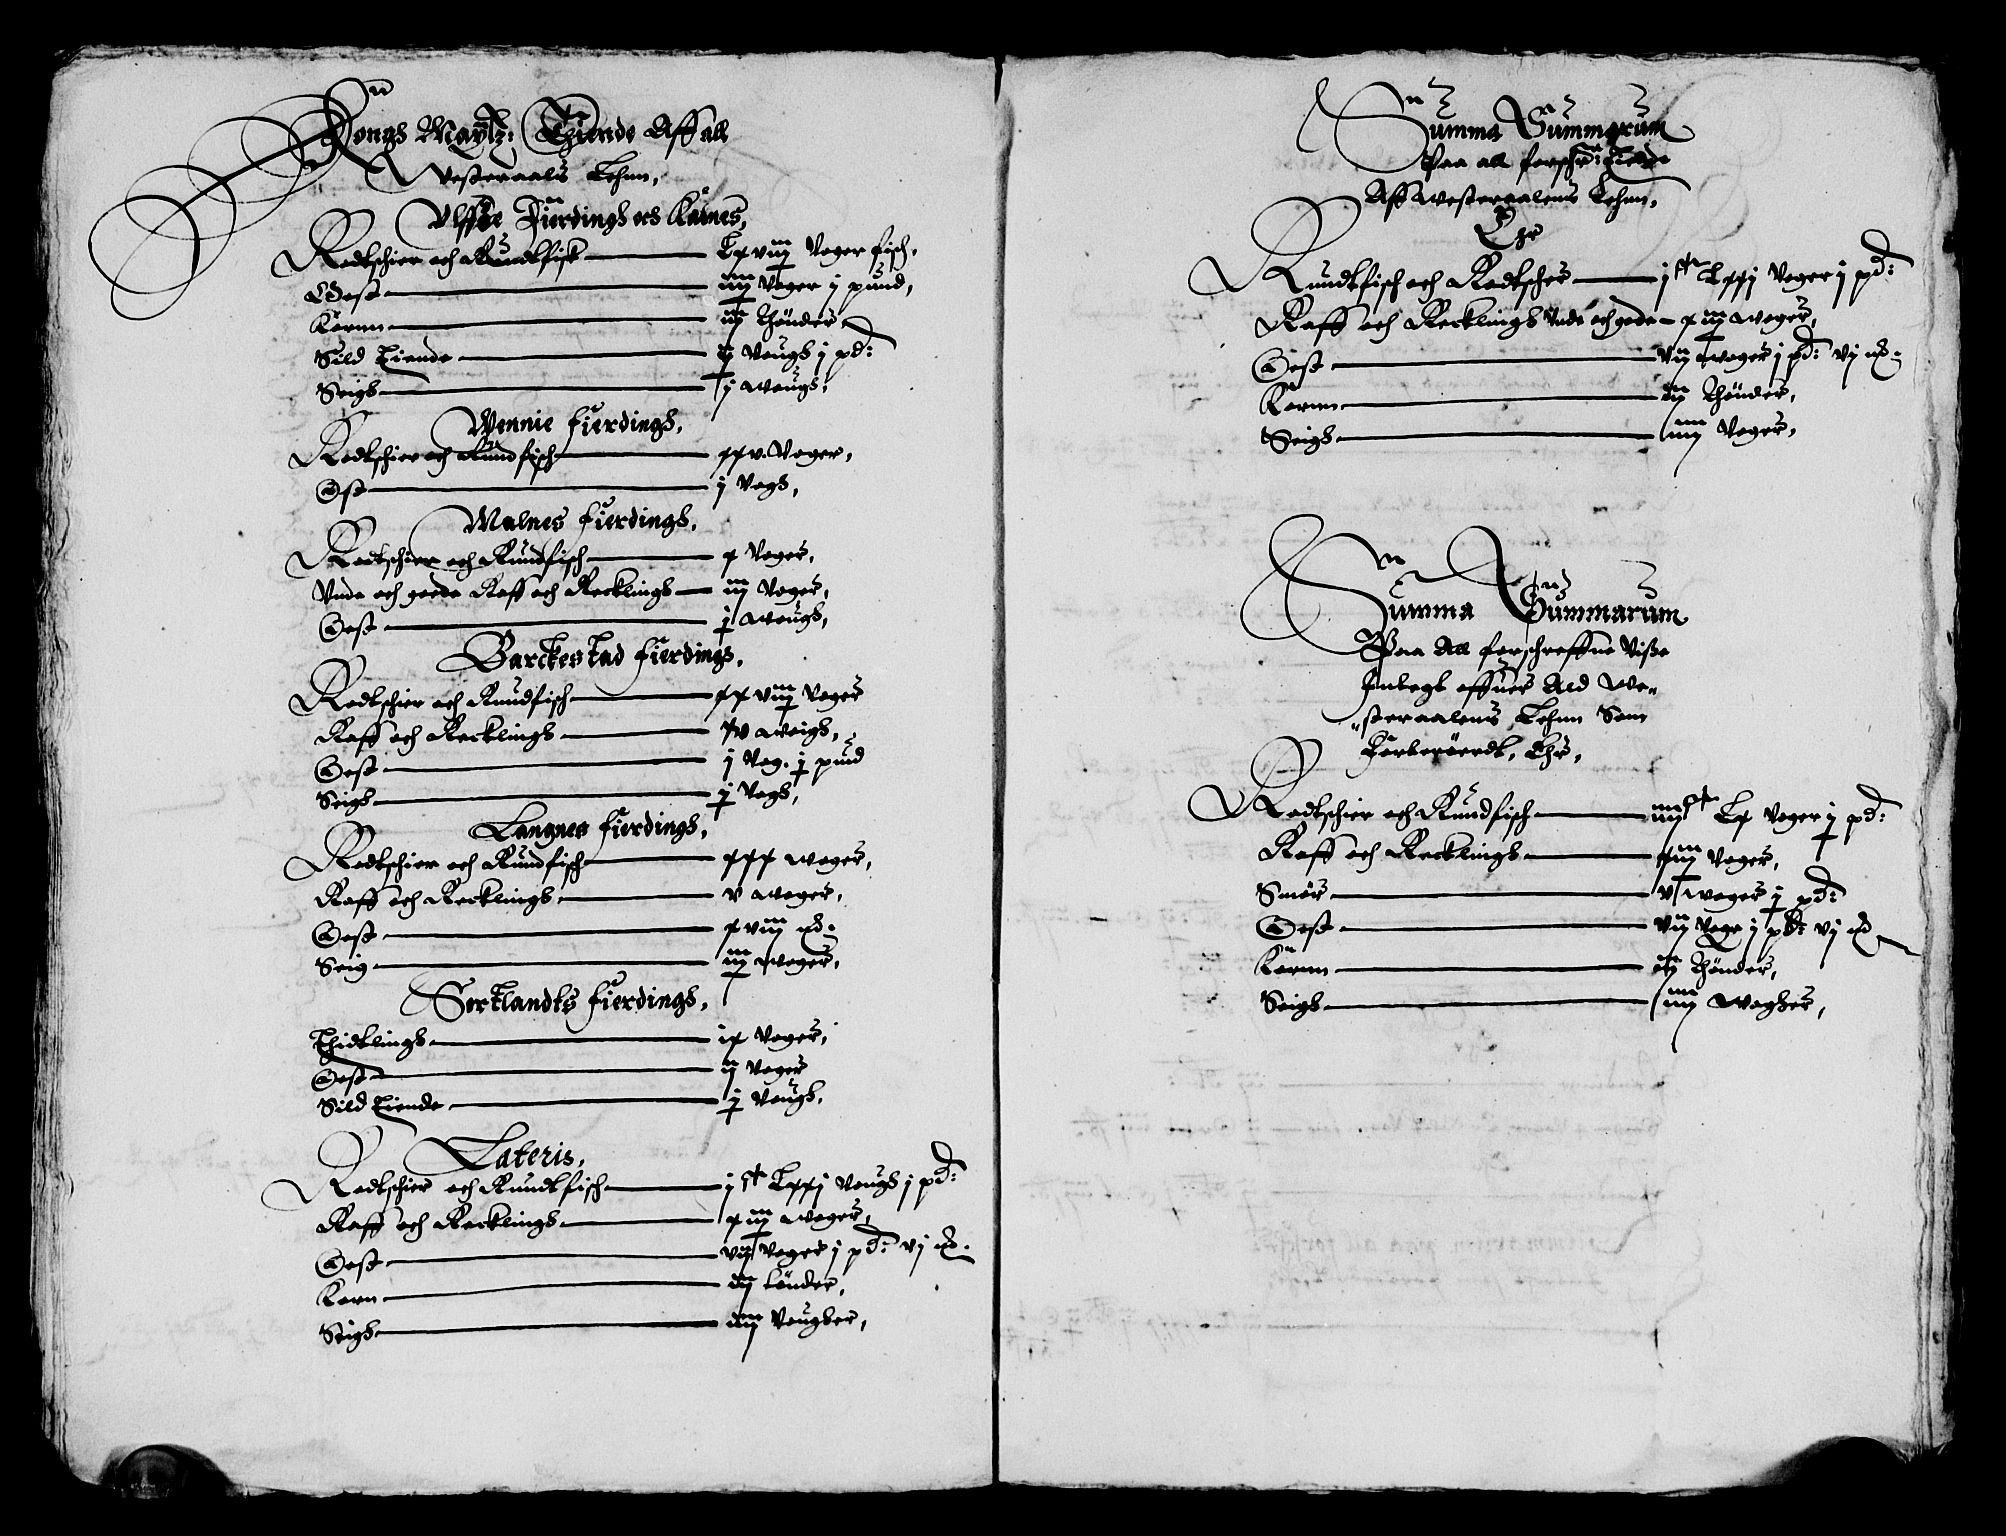 Kongs Maÿtz: Thiende Aff all
Westeraals Lehnn,
Ulfføe Fierdings ocs Kaanes,
Rodtschier och Rundtfisk — Lx viij Voger fisch,
Oest — iiij Voger j pund,
Kornn — iij thönder
Sild Tiende — ij Vougs j pd:
Seigs — j Wougs,
Wennie fierdings,
Rodtschier och Rundfisch — xxv. Voger,
Ost — j Vogs,
Malnes fierdings,
Rodtschier och Rundfisch — x Voger,
Unde och goede Raff och Recklings — iij Voger,
Oest — j Wougs,
Barckestad fierdings,
Rodtschier och Rundfisch — xx viij Voger
Raff och Recklings — v Woigs,
Oest — j Vog. j pund
Seigs — j Vogs,
Langnes fierdings,
Rodtschier och Rundfisch — xxx Woger,
Raff och Recklings — v Woger,
Oest — x viij
Seig — iij Woger,
Sortlandts fierdings,
Thidtlings — ix Voger,
Oest — ij Voger
Sild Tiende — j Vougs,
Lateris,
Rodtschier och Rundtfisch — j Lxxj Vougs j pd:
Raff och Recklings — x iij Woger,
Oest — vij Voger j pd: vj
Korn — iij tönder,
Seigs — iiij Vougber,
Summa Summarum
Paa all forschr: Tiende
Aff Westeraalens Lehnn,
Ehr
Rundtfisch och Rodtscher — j Lxxj Voger j pd:
Raff och Recklings Unde och gode — x iij Woger,
Oest — vij Woger j pd: vj
Kornn — iij thönder,
Seigs — iiij Voger,
Summa Summarum
Paa All forschreffne Visse
Indtegt offuer Ald We-
-steraalens Lehnn Som
Forberöerdt, Ehr,
Rodtschier och Rundfisch — iiij Lx Voger j pd:
Raff och Recklings — x iij Voger,
Smör — v Woger j pd:
Oest — vij Voge j pd: vj
Kornn — iij thönder,
Seigs — iiij Wogher,